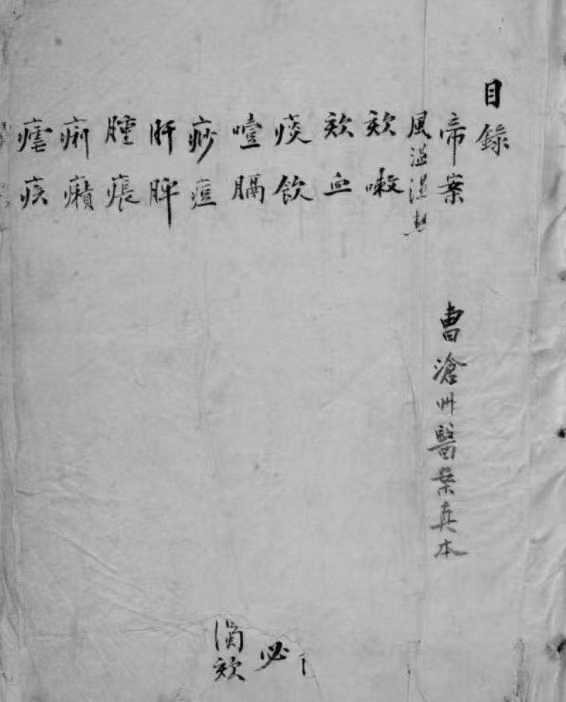 目錄
帝案
風溫濕热
欬嗽
欬血
痰飲
噎膈
痧痘
肝脾
腫痮
痢癩
瘧疾
曹滄州醫案真本
必
欬